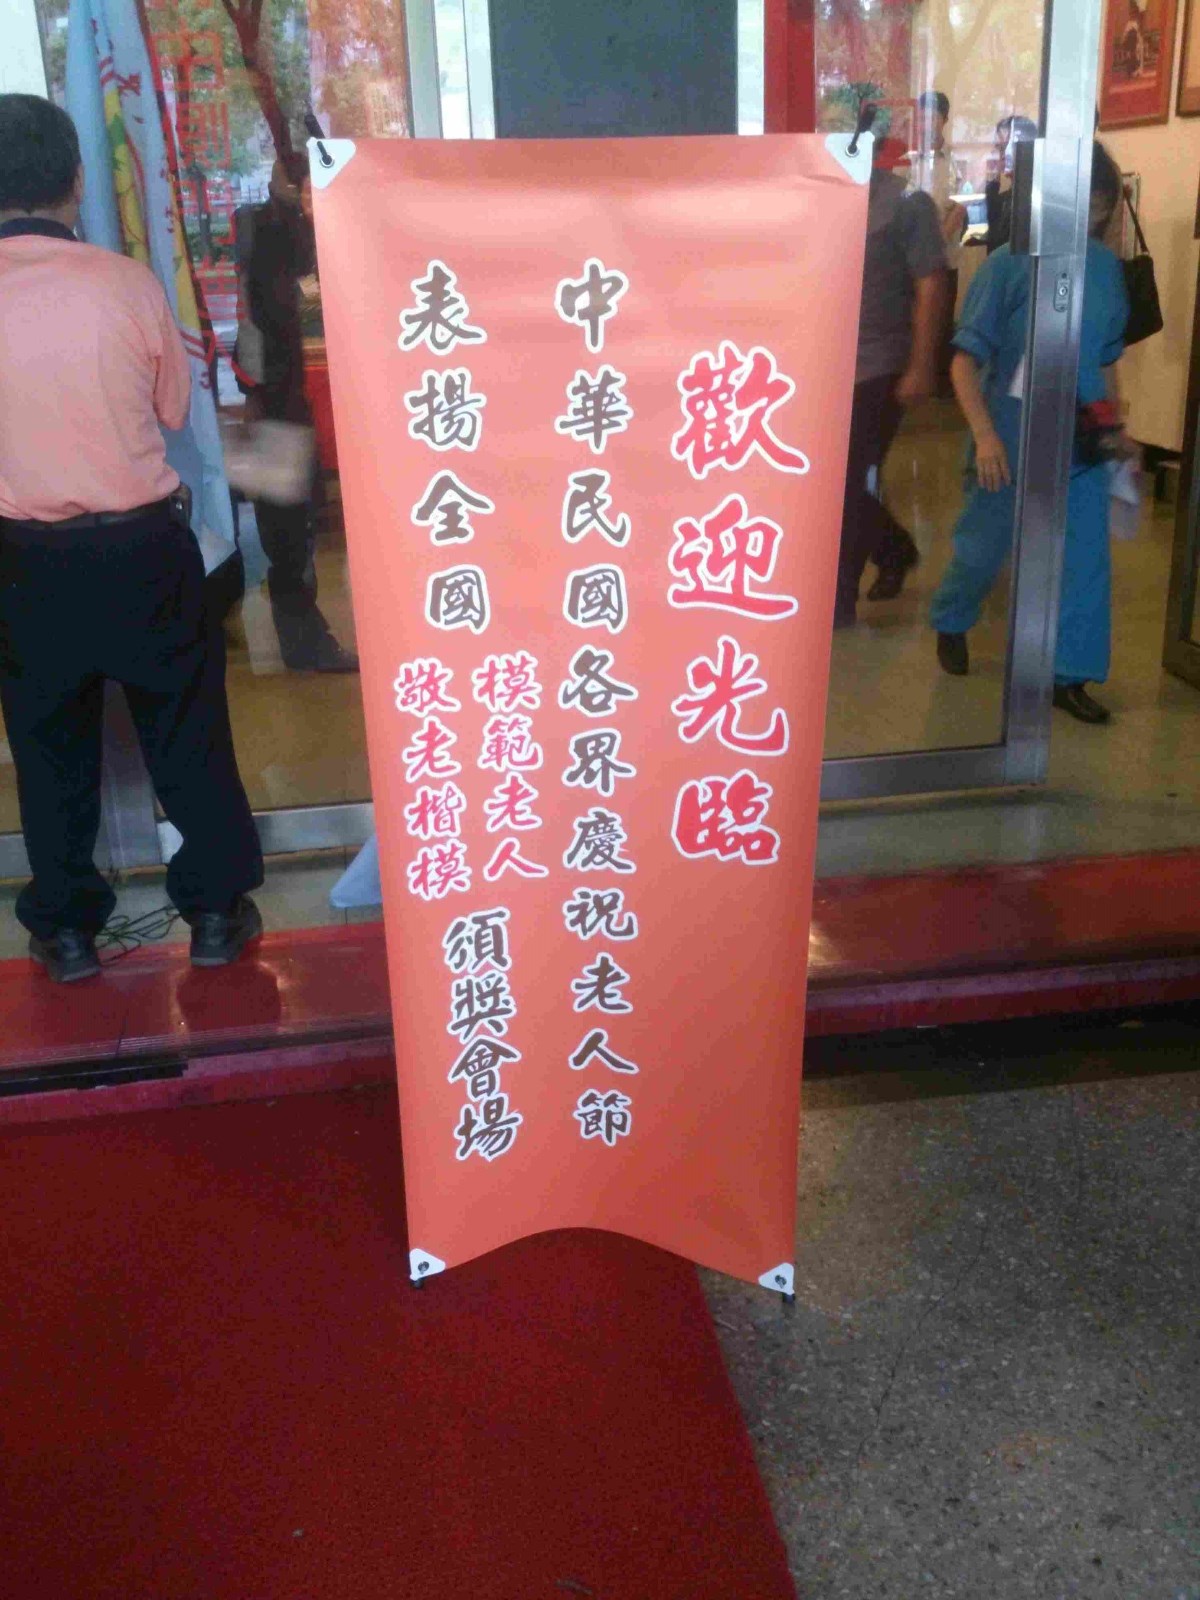 歡迎光臨
中華民國各界慶祝老人節
表揚全國
模範老人
敬老楷模
頒獎會場